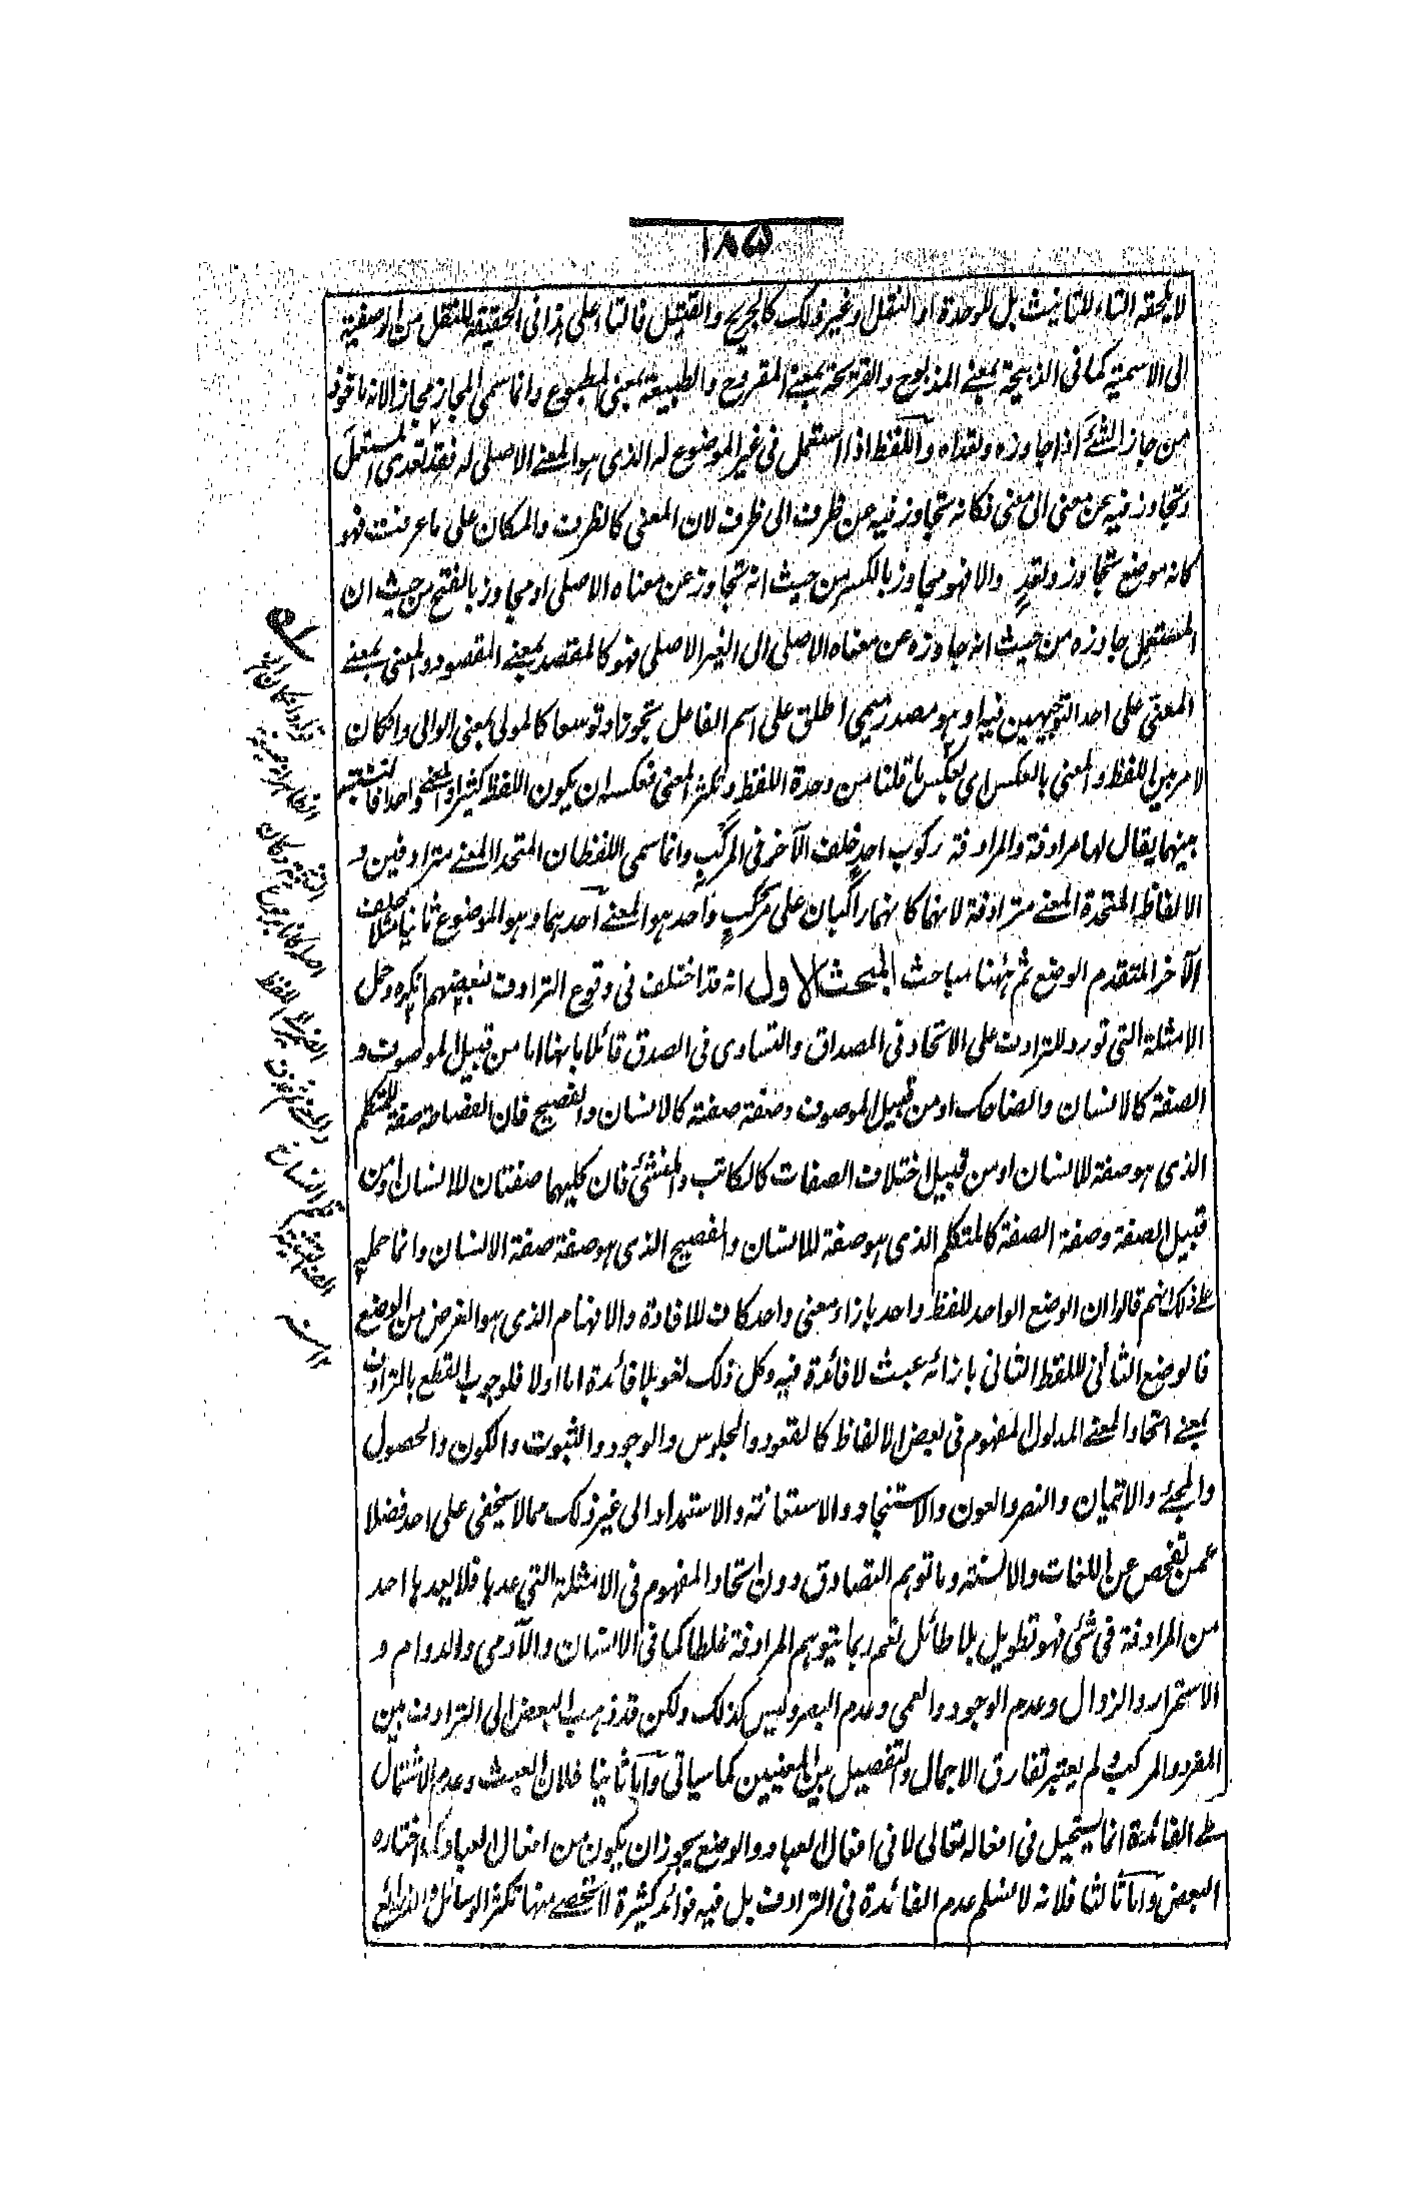 ١٨٥
لا يلحقه التاء للتانيث بل للوحدة او النقل وغير ذلك كالجريح والقتيل فالتاء على هذا فى الحقيقة للنقل من الوصفية
الى الاسمية كما فى الذبيحة بمعنے المذبوح والقريحة بمعنے المقروح والطبيعة بمعنى المطبوع وانما سمى المجاز مجازا لانه ماخوذ
من جاز الشئ اذا جاوزه وتعداه واللفظ اذا استعمل فى غير الموضوع له الذى هو المعنے الاصلى له فقد تعدى المستعمل
وتجاوز فيه عن معنى الى معنى فكانه تجاوز فيه من ظرف الى ظرف لان المعنى كالظرف والمكان على ما عرفت فهو
كانه موضع تجاوز وتعدٍ والا فهو مجاوز بالكسر من حيث انه تجاوز عن معناه الاصلى او مجاوز بالفتح من حيث ان
المستعمل جاوزه من حيث انه جاوزه عن معناه الاصلى الى الغير الاصلى فهو كالمقصد بمعنے المقصود والمعنى بمعنے
المعنى على احد التوجيهين فيه او هو مصدر ميمى اطلق على اسم الفاعل تجوزا وتوسعا كالمولى بمعنى الوالى وان كان
لامر بين اللفظ والمعنى بالعكس اى بعكس ما قلنا من وحدة اللفظ وتكثر المعنى فعكسه ان يكون اللفظ كثيرا والمعنے واحدا فالنسبة
بينهما يقال لها مرادفة والمرادفة ركوب احدٍ خلف الآخر فى المركب وانما سمى اللفظان المتحدا المعنے مترادفين و
الالفاظ المتحدة المعنے مترادفة لانهما كانهما راكبان على مركبٍ واحد هو المعنے احدهما وهو الموضوع ثانيا مثلا خلف
الآخر المتقدم الوضع ثم ههنا مباحث المبحث الاول انه قد اختلف فى وقوع الترادف فبعضهم انكره وحمل
الامثلة التى تورد للترادف على الاتحاد فى المصداق والتساوى فى الصدق قائلا بانها اما من قبيل الموصوف و
الصفة كالانسان والضاحك او من قبيل الموصوف وصفة صفته كالانسان والفصيح فان الفصاحة صفة للمتكلم
الذى هو صفة للانسان او من قبيل اختلاف الصفات كالكاتب والمنشئ فان كليهما صفتان للانسان او من
قبيل الصفة وصفة الصفة كالمتكلم الذى هو صفة للانسان والفصيح الذى هو صفة صفة الانسان وانما حملهم
على ذلك انهم قالوا ان الوضع الواحد للفظ واحد بازاء معنى واحد كاف للافادة والافهام الذى هو الغرض من الوضع
فالوضع الثانى للفظ الثانى بازائه عبث لا فائدة فيه وكل ذلك لغو بلا فائدة اما اولا فلوجوب القطع بالترادف
بمعنے اتحاد المعنے المدلول المفهوم فى بعض الالفاظ كالقعود والجلوس والوجود والثبوت والكون والحصول
والمجئ والاتيان والنصر والعون والاستنجاد والاستعانة والاستمداد الى غير ذلك مما لا يخفى على احد فضلا
عمن تفحص عن اللغات والالسنة وما توهم التصادق دون اتحاد المفهوم فى الامثلة التى عدها فلا يعدها احد
من المرادفة فى شئ فهو تطويل بلا طائل نعم ربما يتوهم المرادفة غلطا كما فى الانسان والآدمى والدوام و
الاستمرار والزوال وعدم الوجود والعمى وعدم البصر وليس كذلك ولكن قد ذهب البعض الى الترادف بين
المفرد والمركب ولم يعتبر تفارق الاجمال والتفصيل بين المعنيين كما سياتى واما ثانيا فلان العبث وعدم الاشتمال
على الفائدة انما يستحيل فى افعاله تعالى لا فى افعال العباد والوضع يجوز ان يكون من افعال العباد كما اختاره
البعض واما ثالثا فلانه لا نسلم عدم الفائدة فى الترادف بل فيه فوائد كثيرة لا تحصے منها تكثر الوسائل والذرائع